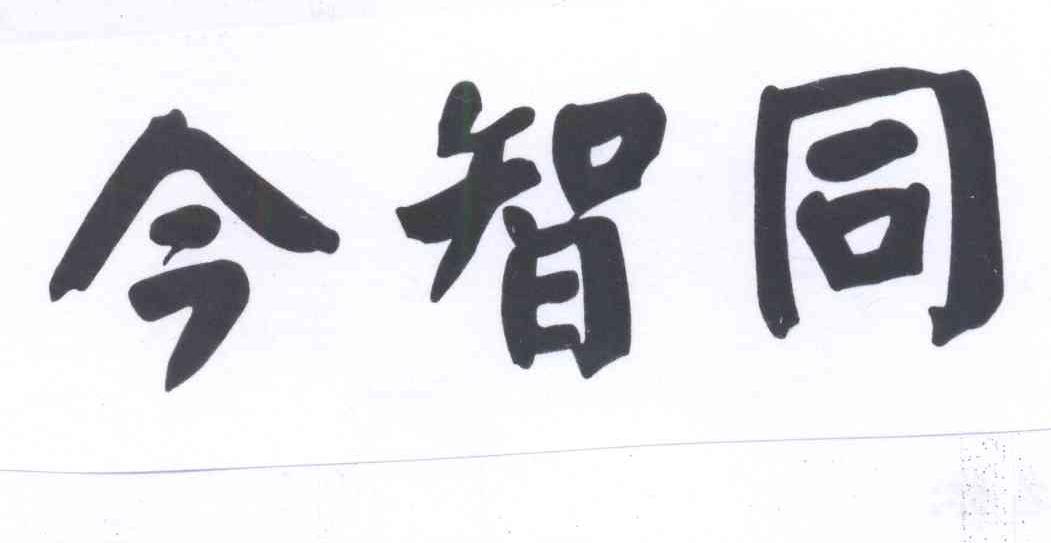 今智同